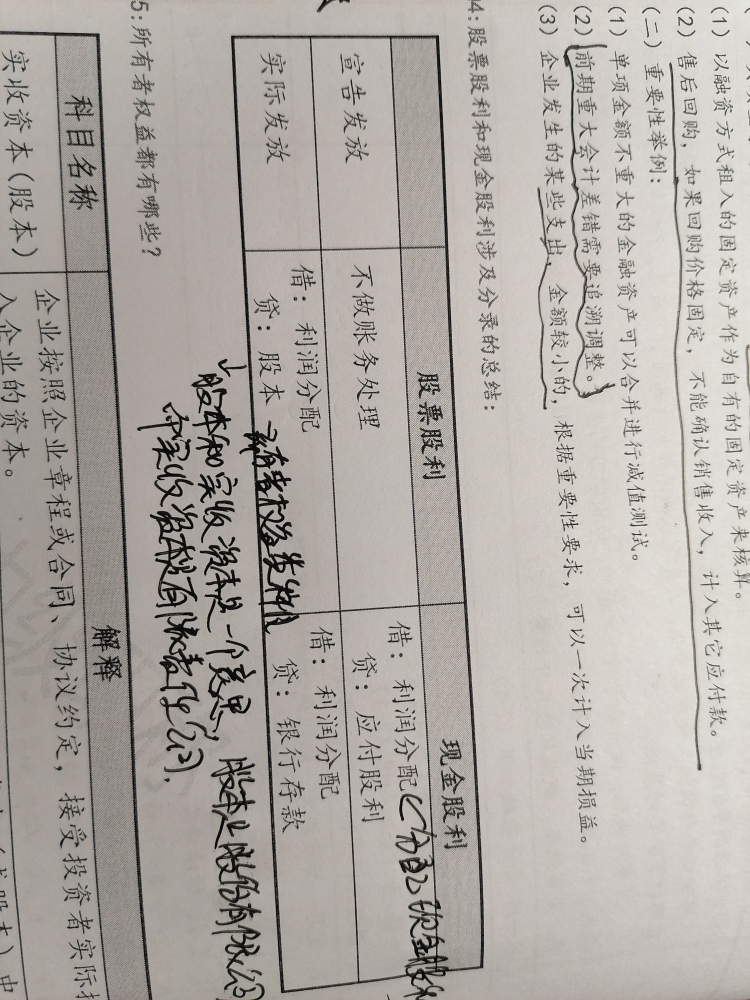 (1) 以融资方式租入的固定资产作为自有的固定资产来核算。
(2) 售后回购，如果回购价格固定，不能确认销售收入，计入其它应付款。
(二) 重要性举例：
(1) 单项金额不重大的金融资产可以合并进行减值测试。
(2) 前期重大会计差错需要追溯调整。
(3) 企业发生的某些支出，金额较小的，根据重要性要求，可以一次计入当期损益。
4：股票股利和现金股利涉及分录的总结：
股票股利 现金股利
宣告发放 不做账务处理 借：利润分配
贷：应付股利
实际发放 借：利润分配 借：利润分配
贷：股本 贷：银行存款
股本和实收资本是一个意思，股本是股份有限公司
5：所有者权益都有哪些？
科目名称 解释
实收资本（股本） 企业按照企业章程或合同、协议约定，接受投资者实际
入企业的资本。